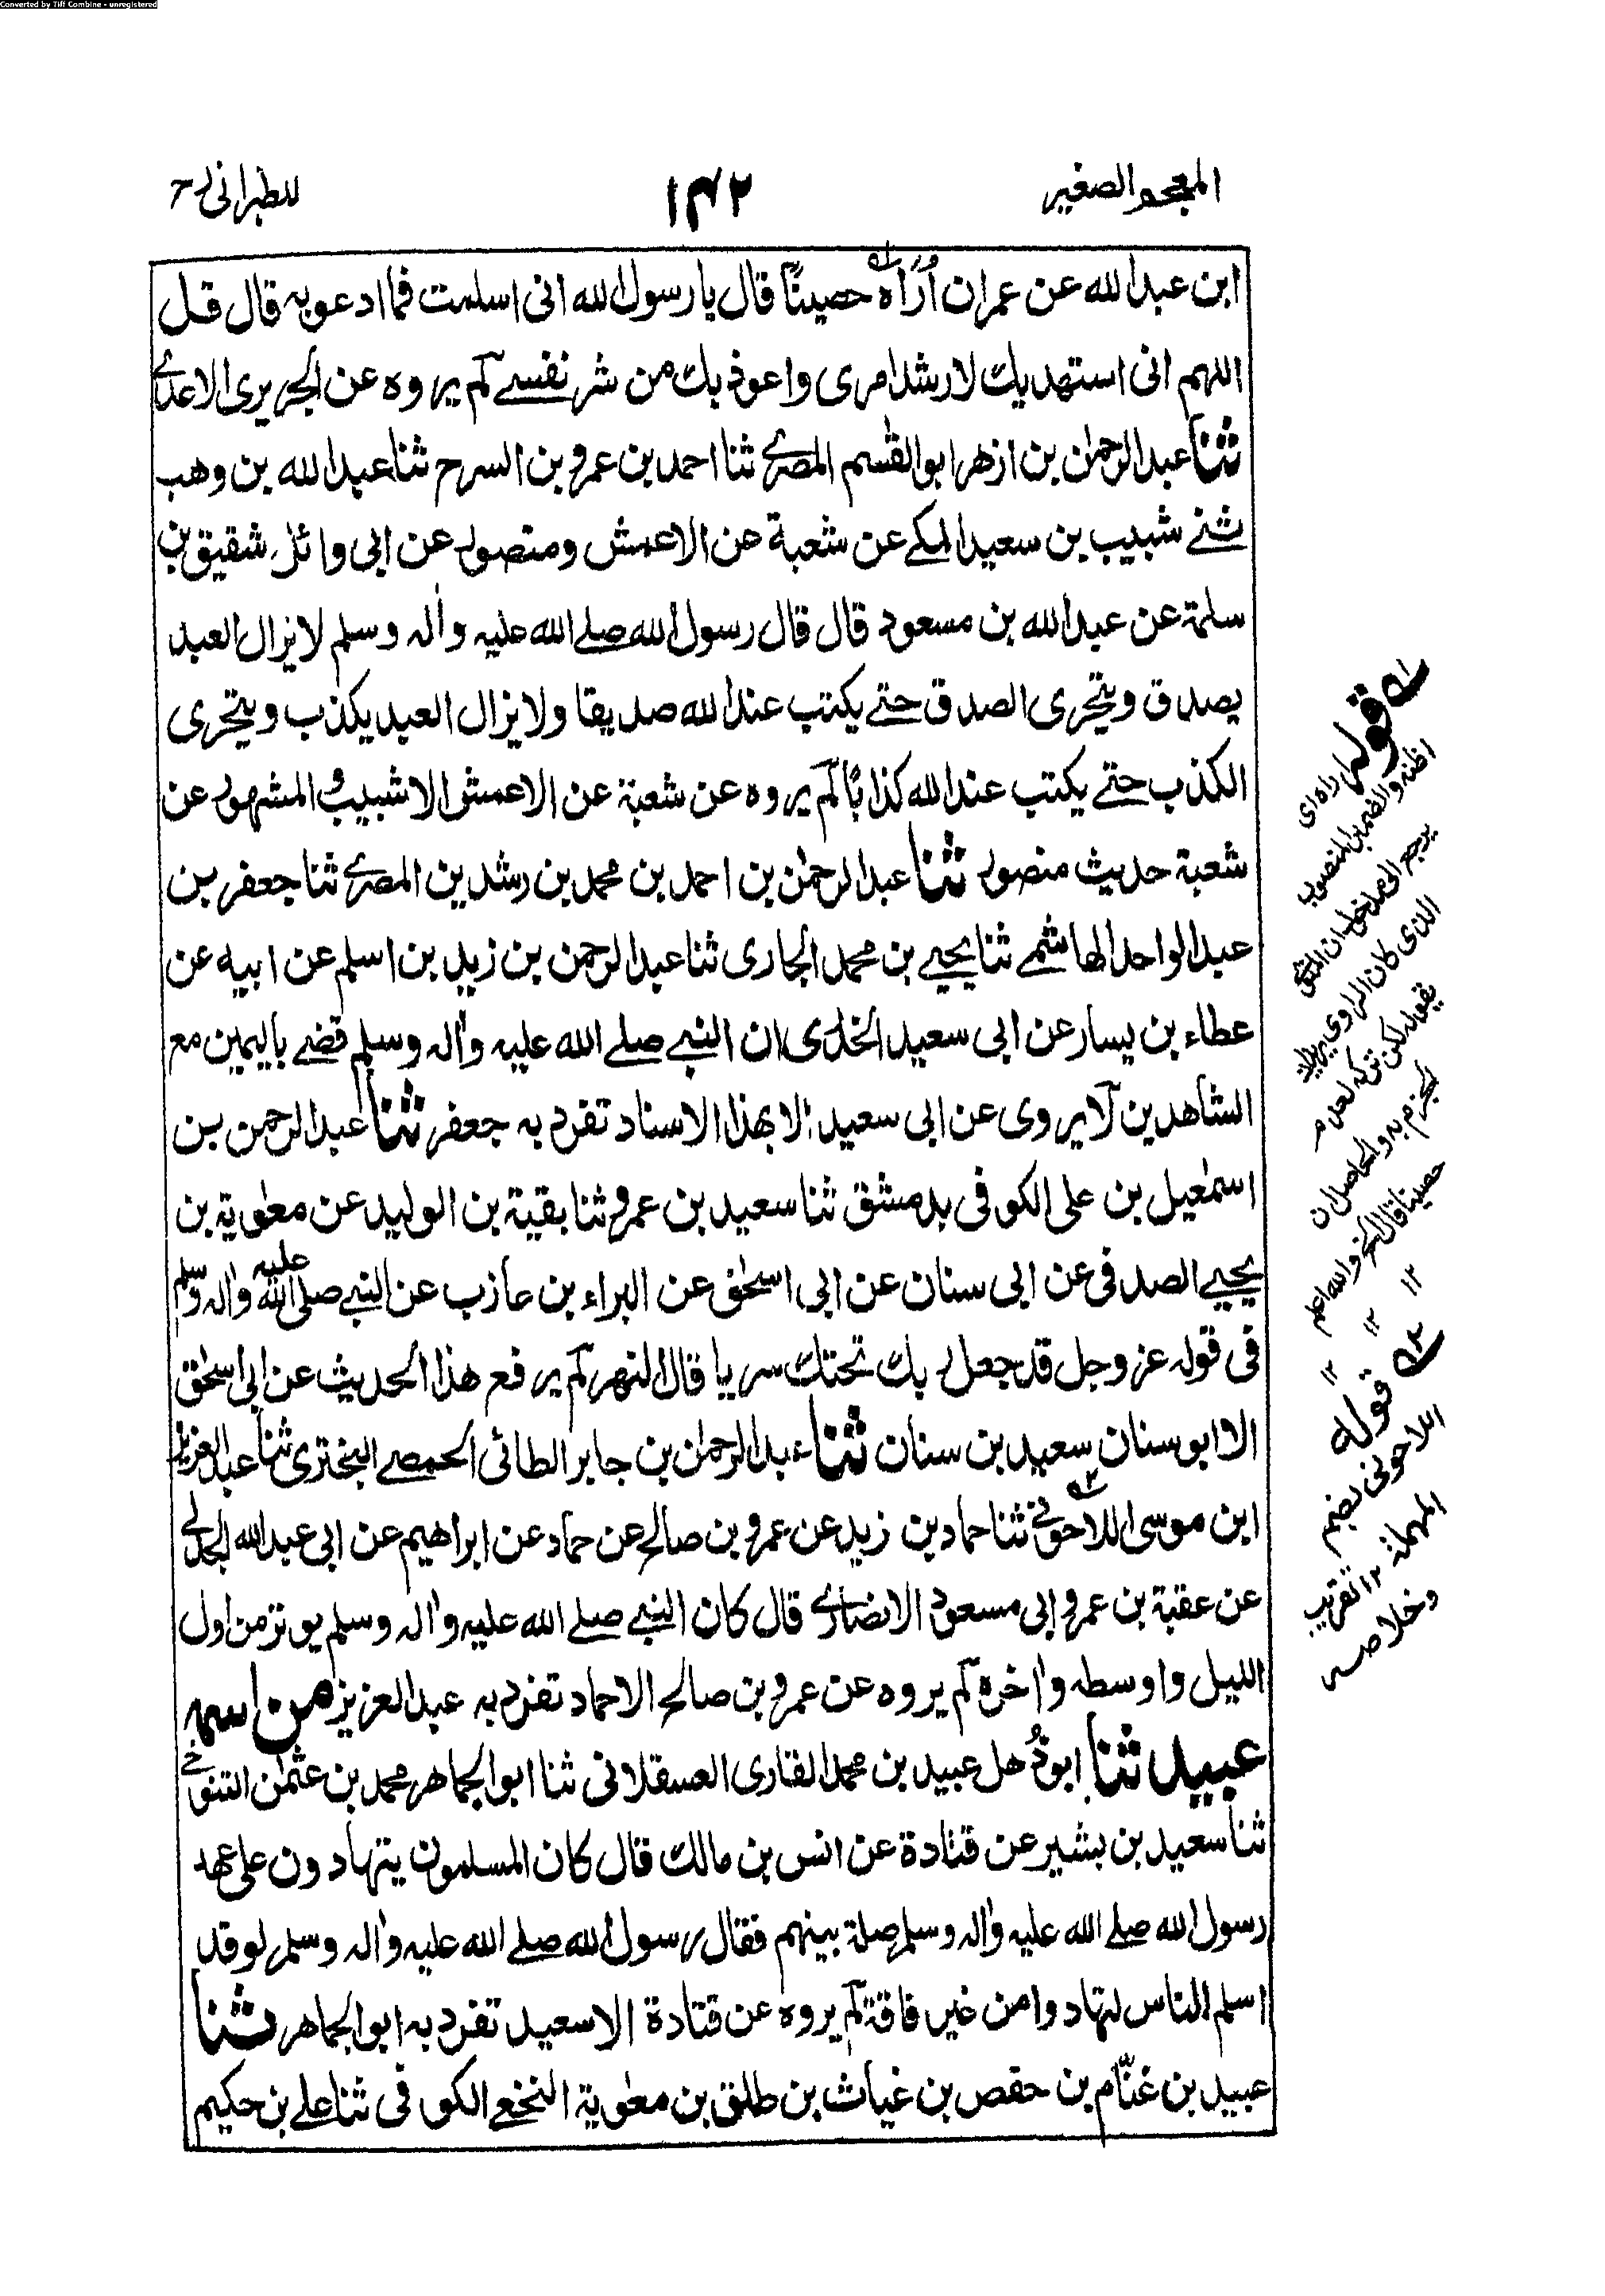 Converted by Tiff Combine - unregistered
المعجم الصغير
۱۴۲
للطبرانی رح
ابن عبدالله عن عمران اُرَاہ حصینًا قال یا رسول الله انی اسلمت فما ادعو به قال قل
اللهم انی استهدیك لارشد امری واعوذ بك من شر نفسے لم یروه عن الجریری الا عدی
ثنا عبدالرحمٰن بن ازهر ابو القٰسم المصرے ثنا احمد بن عمرو بن السرح ثنا عبدالله بن وهب
ثنے شبیب بن سعید المکے عن شعبة عن الاعمش ومنصور عن ابی وائل شقیق بن
سلمة عن عبدالله بن مسعود قال قال رسول الله صلے الله علیه واٰله وسلم لا یزال العبد
یصدق ویتحری الصدق حتے یکتب عند الله صدیقا ولا یزال العبد یکذب ویتحری
الکذب حتے یکتب عند الله کذابًا لم یروه عن شعبة عن الاعمش الا شبیب والمشهور عن
شعبة حدیث منصور ثنا عبدالرحمٰن بن احمد بن محمد بن رشدین المصرے ثنا جعفر بن
عبدالواحد الهاشمے ثنا یحیے بن محمد الجاری ثنا عبدالرحمن بن زید بن اسلم عن ابیه عن
عطاء بن یسار عن ابی سعید الخدری ان النبے صلے الله علیه واٰله وسلم قضے بالیمین مع
الشاهدین لا یروی عن ابی سعید الا بهذا الاسناد تفرد به جعفر ثنا عبدالرحمن بن
اسمٰعیل بن علی الکوفی بدمشق ثنا سعید بن عمرو ثنا بقیة بن الولید عن معٰویة بن
یحیے الصدفی عن ابی سنان عن ابی اسحٰق عن البراء بن عازب عن النبے صلی الله علیه واٰله وسلم
فی قوله عز وجل قد جعل ربك تحتك سریا قال النهر لم یرفع هذا الحدیث عن ابی اسحٰق
الا ابو سنان سعید بن سنان ثنا عبدالرحمٰن بن جابر الطائی الحمصے البختری ثنا عبدالعزیز
ابن موسی اللاحونی ثنا حماد بن زید عن عمرو بن صالح عن حماد عن ابراهیم عن ابی عبدالله الجدلے
عن عقبة بن عمرو ابی مسعود الانصارے قال کان النبے صلے الله علیه واٰله وسلم یوتر من اول
اللیل واوسطه واٰخره لم یروه عن عمرو بن صالح الا حماد تفرد به عبدالعزیز من اسمه
عبید ثنا ابو ذُهل عبید بن محمد القاری العسقلانی ثنا ابو الجماهر محمد بن عثمٰن التنوخے
ثنا سعید بن بشیر عن قتادة عن انس بن مالك قال کان المسلمون یتهادون علی عهد
رسول الله صلے الله علیه واٰله وسلم صلة بینهم فقال رسول الله صلے الله علیه واٰله وسلم لو قد
اسلم الناس لتهادوا من غیر فاقة لم یروه عن قتادة الا سعید تفرد به ابو الجماهر ثنا
عبید بن غنّام بن حفص بن غیاث بن طلق بن معٰویة النخعے الکوفی ثنا علے بن حکیم
قوله اراه ای
اظنه والضمیر المنصوب
الذی کان الراوی
حصینا قال الخ والله اعلم
۱۲
قوله
اللاحونی بضم
المهملة ۱۲ تقریب
وخلاصه